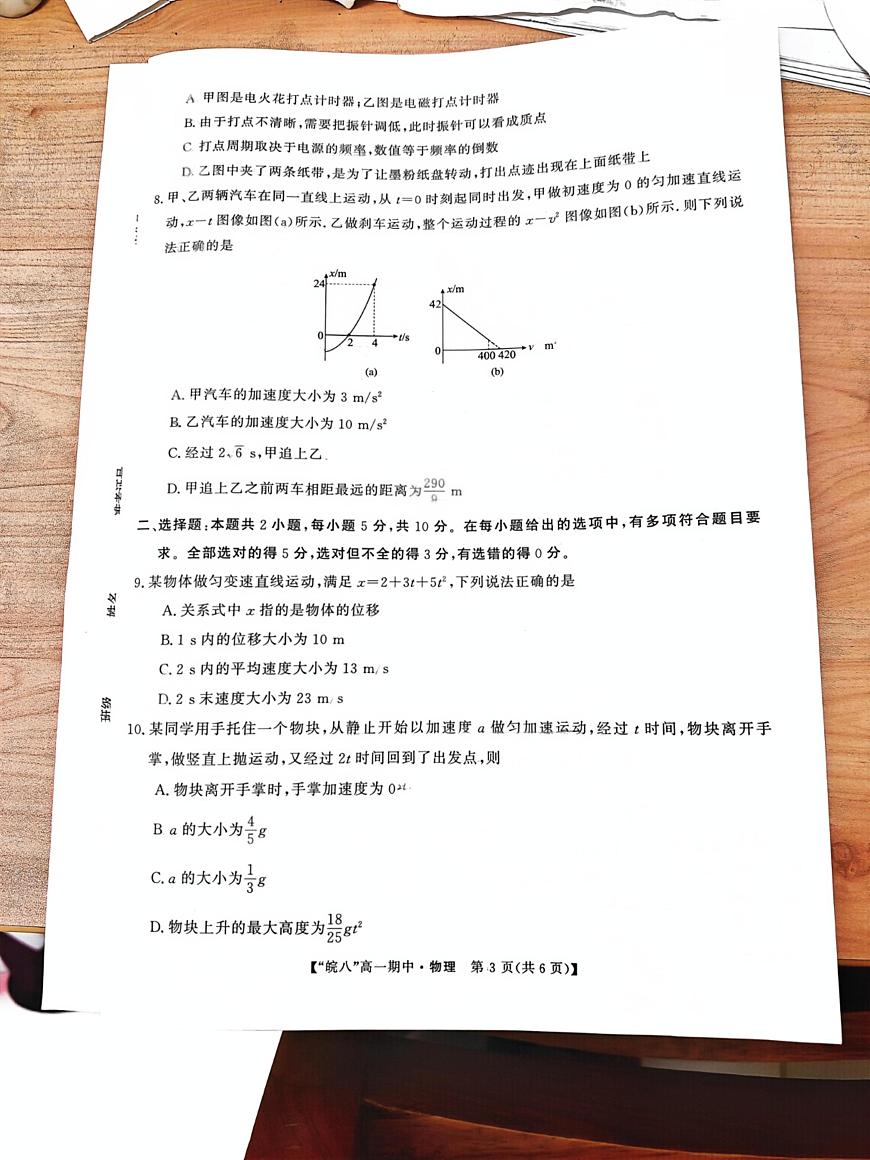 A 甲图是电火花打点计时器;乙图是电磁打点计时器
B. 由于打点不清晰,需要把振针调低,此时振针可以看成质点
C 打点周期取决于电源的频率,数值等于频率的倒数
D. 乙图中夹了两条纸带,是为了让墨粉纸盘转动,打出点迹出现在上面纸带上
8. 甲、乙两辆汽车在同一直线上运动,从 t=0 时刻起同时出发,甲做初速度为 0 的匀加速直线运
动,x-t 图像如图(a)所示. 乙做刹车运动,整个运动过程的 x-v² 图像如图(b)所示. 则下列说
法正确的是
x/m
24
0
2
4
t/s
(a)
x/m
42
0
400 420
v
m
(b)
A. 甲汽车的加速度大小为 3 m/s²
B. 乙汽车的加速度大小为 10 m/s²
C. 经过 2√6 s,甲追上乙.
D. 甲追上乙之前两车相距最远的距离为290/9 m
二、选择题:本题共 2 小题,每小题 5 分,共 10 分。在每小题给出的选项中,有多项符合题目要
求。全部选对的得 5 分,选对但不全的得 3 分,有选错的得 0 分。
9. 某物体做匀变速直线运动,满足 x=2+3t+5t²,下列说法正确的是
A. 关系式中 x 指的是物体的位移
B. 1 s 内的位移大小为 10 m
C. 2 s 内的平均速度大小为 13 m/s
D. 2 s 末速度大小为 23 m/s
10. 某同学用手托住一个物块,从静止开始以加速度 a 做匀加速运动,经过 t 时间,物块离开手
掌,做竖直上抛运动,又经过 2t 时间回到了出发点,则
A. 物块离开手掌时,手掌加速度为 0
B a 的大小为4/5g
C. a 的大小为1/3g
D. 物块上升的最大高度为18/25gt²
【“皖八”高一期中·物理 第 3 页(共 6 页)】
姓名
班级